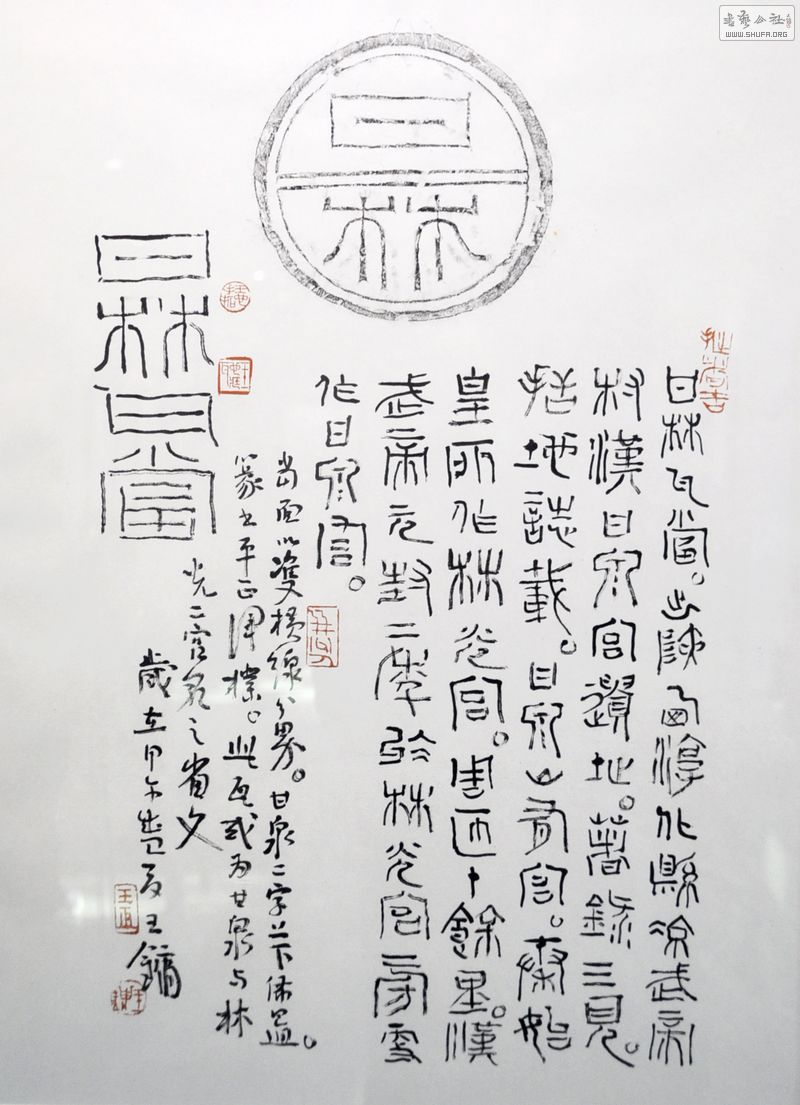 甘林
甘林瓦當。出陝西淳化縣涼武帝
村漢甘泉宮遺址。著錄三見。
括地誌載。甘泉山有宮。秦始
皇所作林光宮。周匝十餘里。漢
武帝元封二年於林光宮旁更
作甘泉宮。
當面以雙橫線分界。甘泉二字上下佈置。
篆書平正渾樸。此瓦或为甘泉与林
光二宮名之省文
歲在甲午盛夏王鏞
甘林瓦當
書藝公社
WWW.SHUFA.ORG